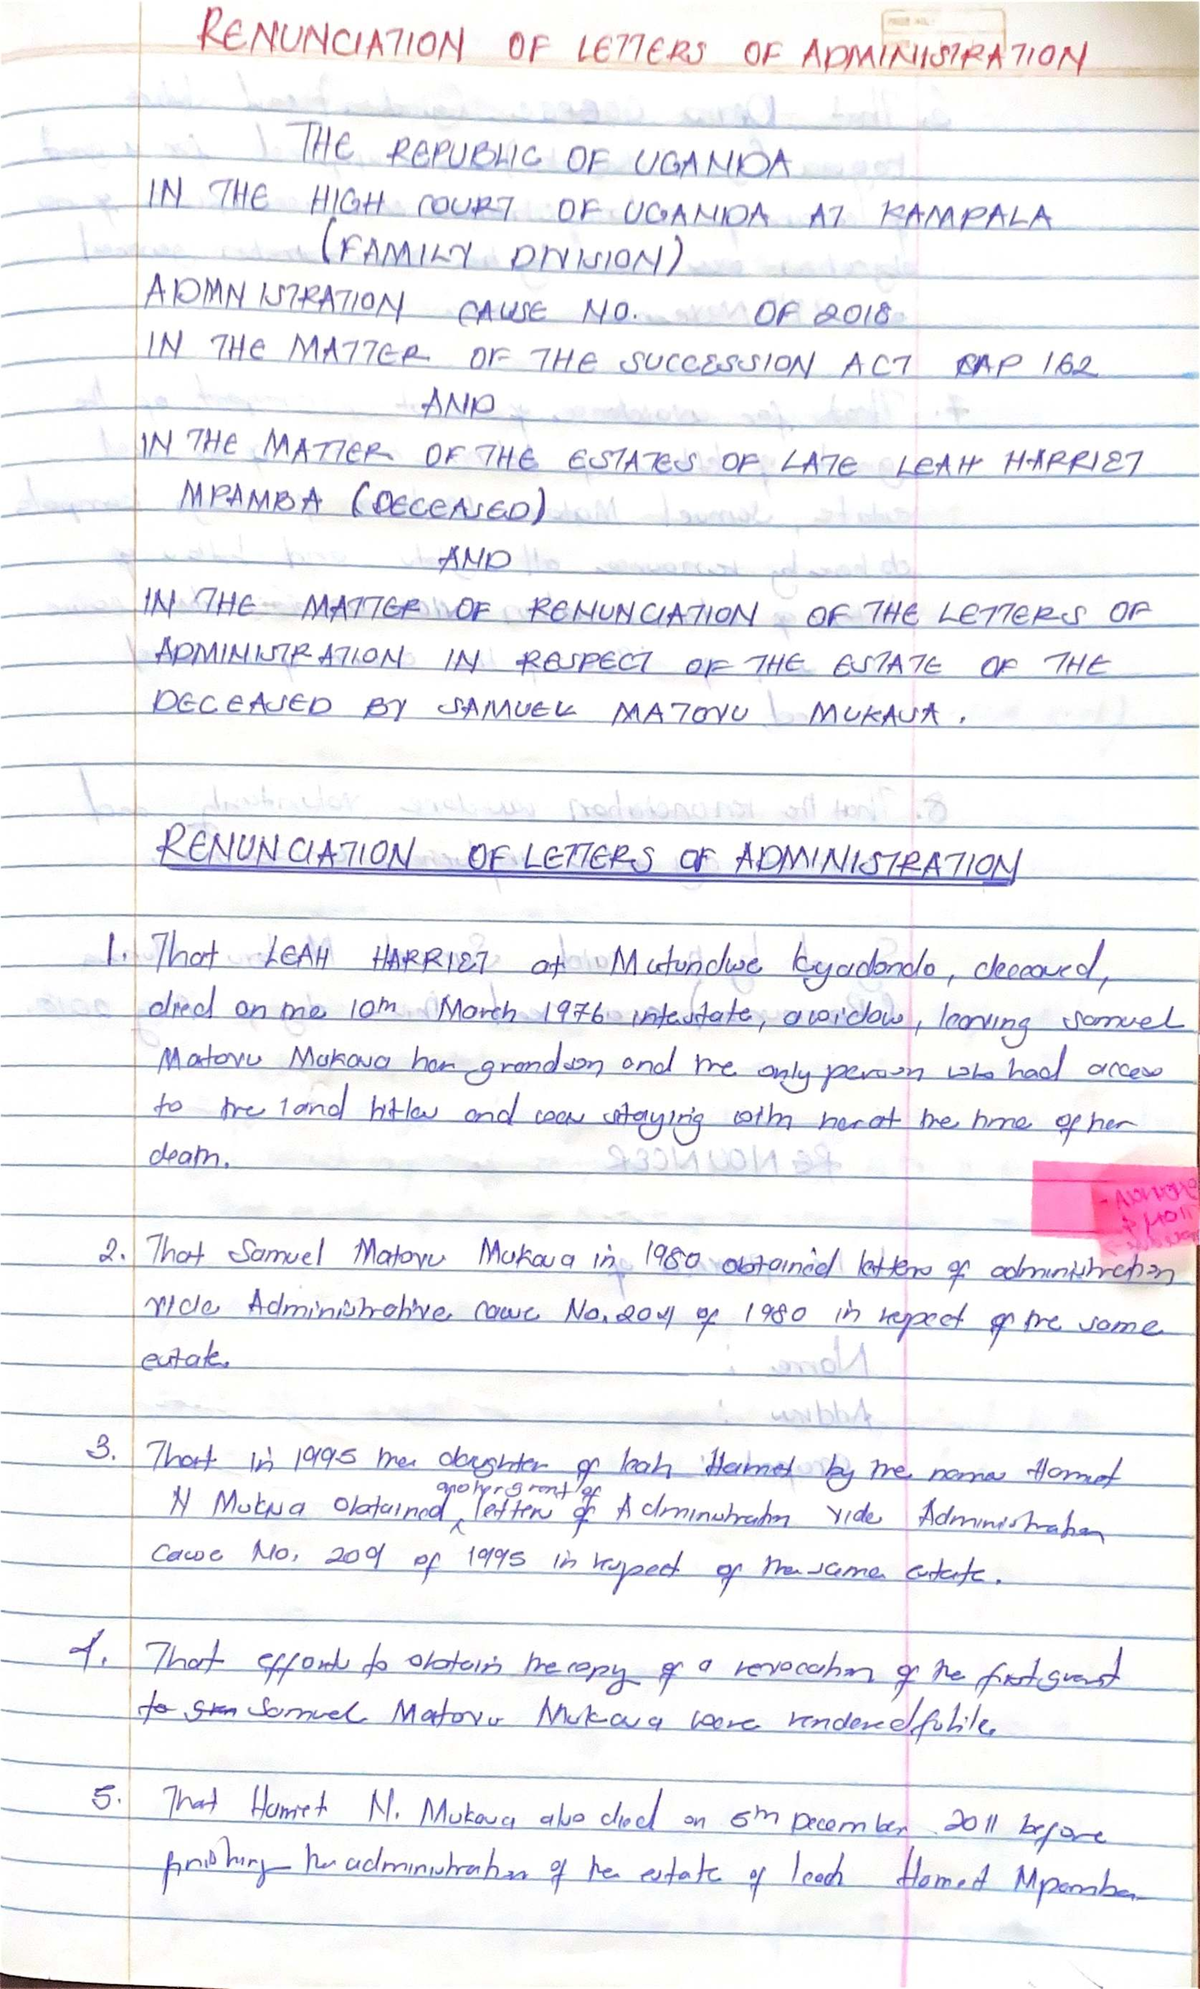 RENUNCIATION OF LETTERS OF ADMINISTRATION
THE REPUBLIC OF UGANDA
IN THE HIGH COURT OF UGANDA AT KAMPALA
(FAMILY DIVISION)
ADMNISTRATION CAUSE NO. OF 2018
IN THE MATTER OF THE SUCCESSION ACT CAP 162
AND
IN THE MATTER OF THE ESTATES OF LATE LEAH HARRIET
MPAMBA (DECEASED)
AND
IN THE MATTER OF RENUNCIATION OF THE LETTERS OF
ADMINISTRATION IN RESPECT OF THE ESTATE OF THE
DECEASED BY SAMUEL MATOVU MUKASA.
RENUNCIATION OF LETTERS OF ADMINISTRATION
1. That LEAH HARRIET of Mutundwe Kyadondo, deceased,
died on the 10th March 1976 intestate, a widow, leaving Samuel
Matovu Mukasa her grandson and the only person who had access
to the land titles and was staying with her at the time of her
death.
2. That Samuel Matovu Mukasa in 1980 obtained letters of administration
vide Administrative cause No. 2004 of 1980 in respect of the same
estate.
3. That in 1995 the daughter of leah Harriet by the name Harriet
N Mukasa obtained another grant of letters of Administration vide Administration
Cause No. 209 of 1995 in respect of the same estate.
4. That efforts to obtain the copy of a revocation of the first grant
to Sam Samuel Matovu Mukasa were rendered futile.
5. That Harriet N. Mukasa also died on 5th December 2011 before
finishing the administration of the estate of leah Harriet Mpamba